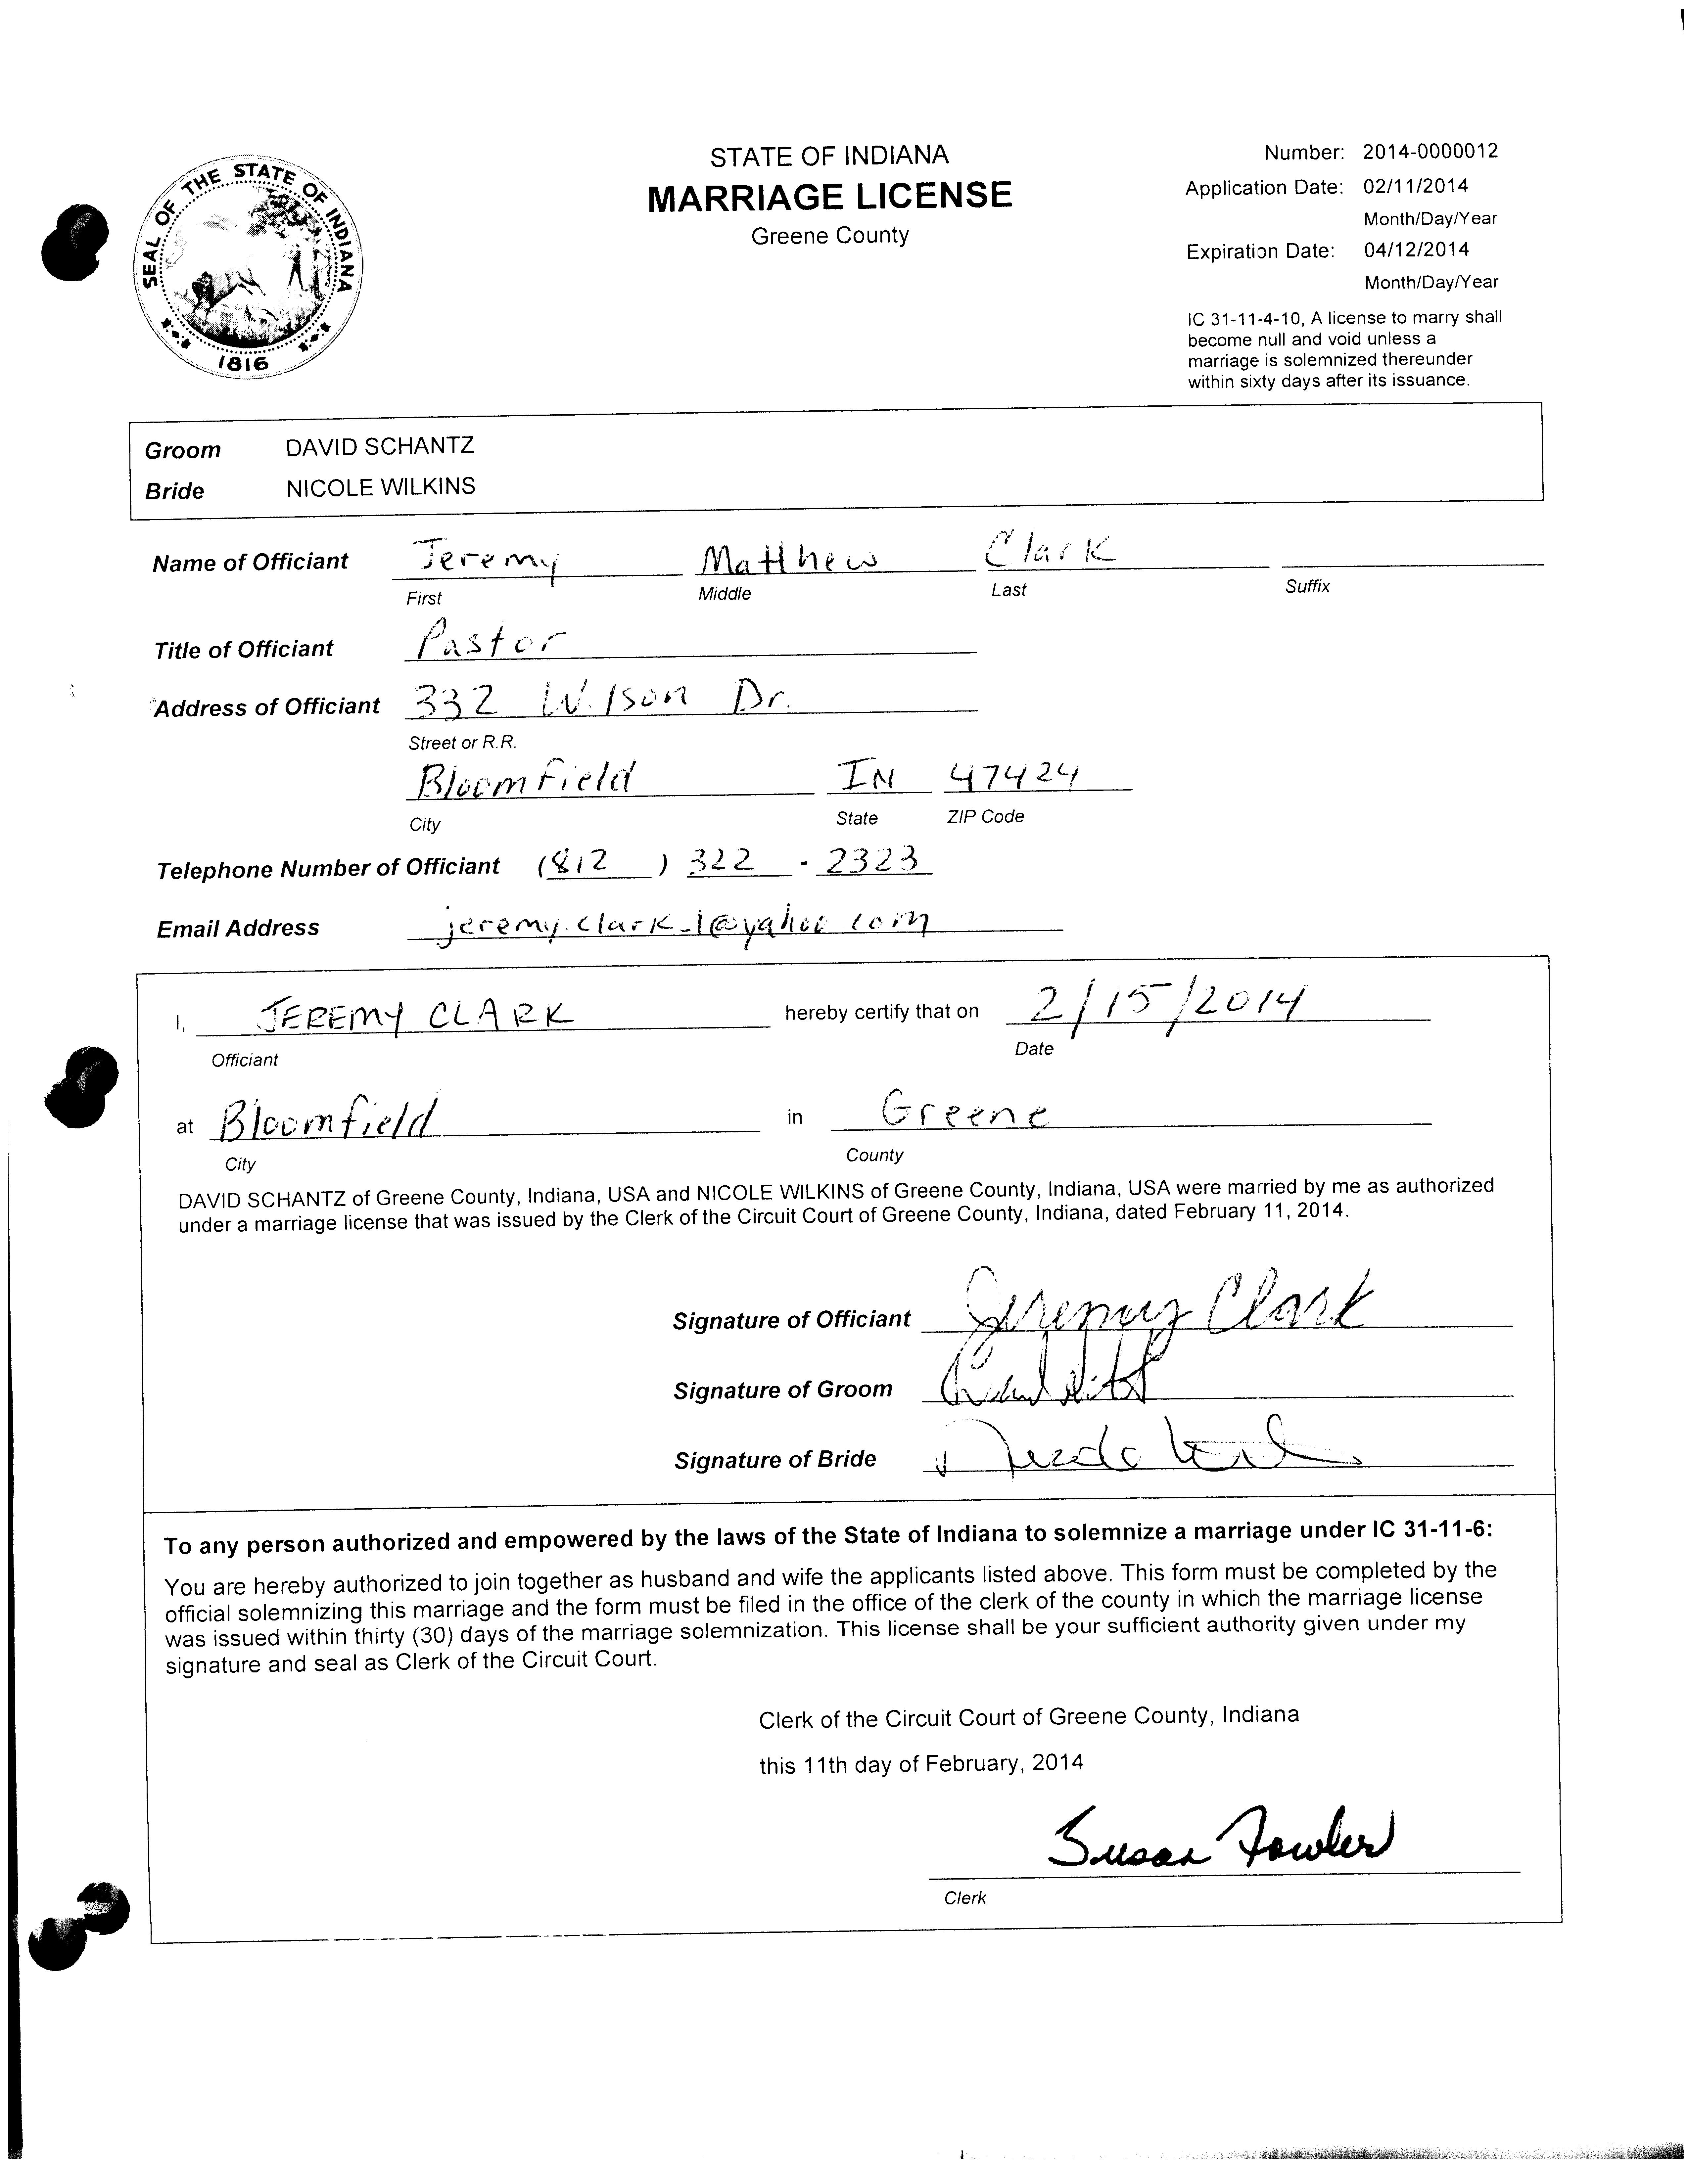 SEAL OF THE STATE OF INDIANA
1816
STATE OF INDIANA
MARRIAGE LICENSE
Greene County
Number: 2014-0000012
Application Date: 02/11/2014
Month/Day/Year
Expiration Date: 04/12/2014
Month/Day/Year
IC 31-11-4-10, A license to marry shall
become null and void unless a
marriage is solemnized thereunder
within sixty days after its issuance.
Groom DAVID SCHANTZ
Bride NICOLE WILKINS
Name of Officiant Jeremy Matthew Clark
First Middle Last Suffix
Title of Officiant Pastor
Address of Officiant 332 Wilson Dr.
Street or R.R.
Bloomfield IN 47424
City State ZIP Code
Telephone Number of Officiant (812) 322 - 2323
Email Address jeremy.clark_1@yahoo.com
I, JEREMY CLARK hereby certify that on 2/15/2014
Officiant Date
at Bloomfield in Greene
City County
DAVID SCHANTZ of Greene County, Indiana, USA and NICOLE WILKINS of Greene County, Indiana, USA were married by me as authorized
under a marriage license that was issued by the Clerk of the Circuit Court of Greene County, Indiana, dated February 11, 2014.
Signature of Officiant Jeremy Clark
Signature of Groom
Signature of Bride
To any person authorized and empowered by the laws of the State of Indiana to solemnize a marriage under IC 31-11-6:
You are hereby authorized to join together as husband and wife the applicants listed above. This form must be completed by the
official solemnizing this marriage and the form must be filed in the office of the clerk of the county in which the marriage license
was issued within thirty (30) days of the marriage solemnization. This license shall be your sufficient authority given under my
signature and seal as Clerk of the Circuit Court.
Clerk of the Circuit Court of Greene County, Indiana
this 11th day of February, 2014
Susan Fowler
Clerk